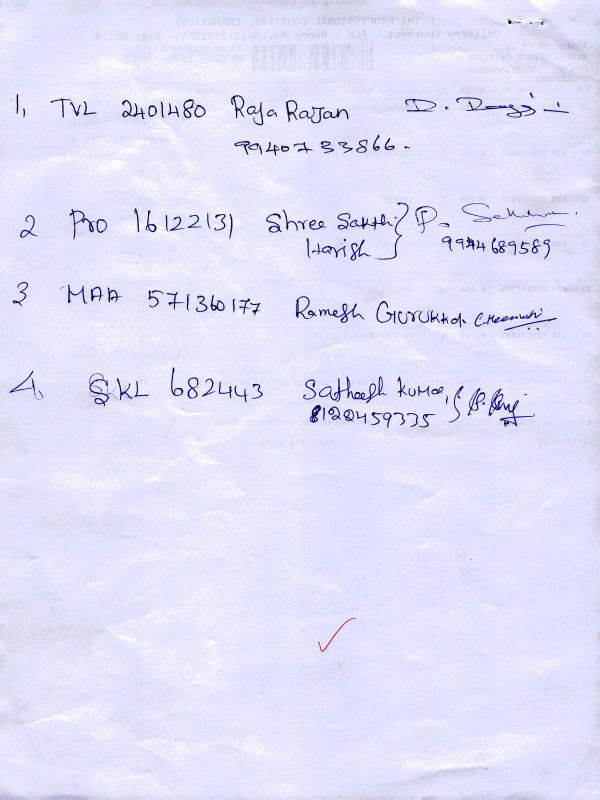 1, TVL 2401480 Raja Rajan
99407 33866.
2 Pro 16122131 Shree Sakthi
Harish
9944689589
3 MAA 571360177 Ramesh Gurukkal
4. SKL 682443 Satheesh Kumar,
8122459335